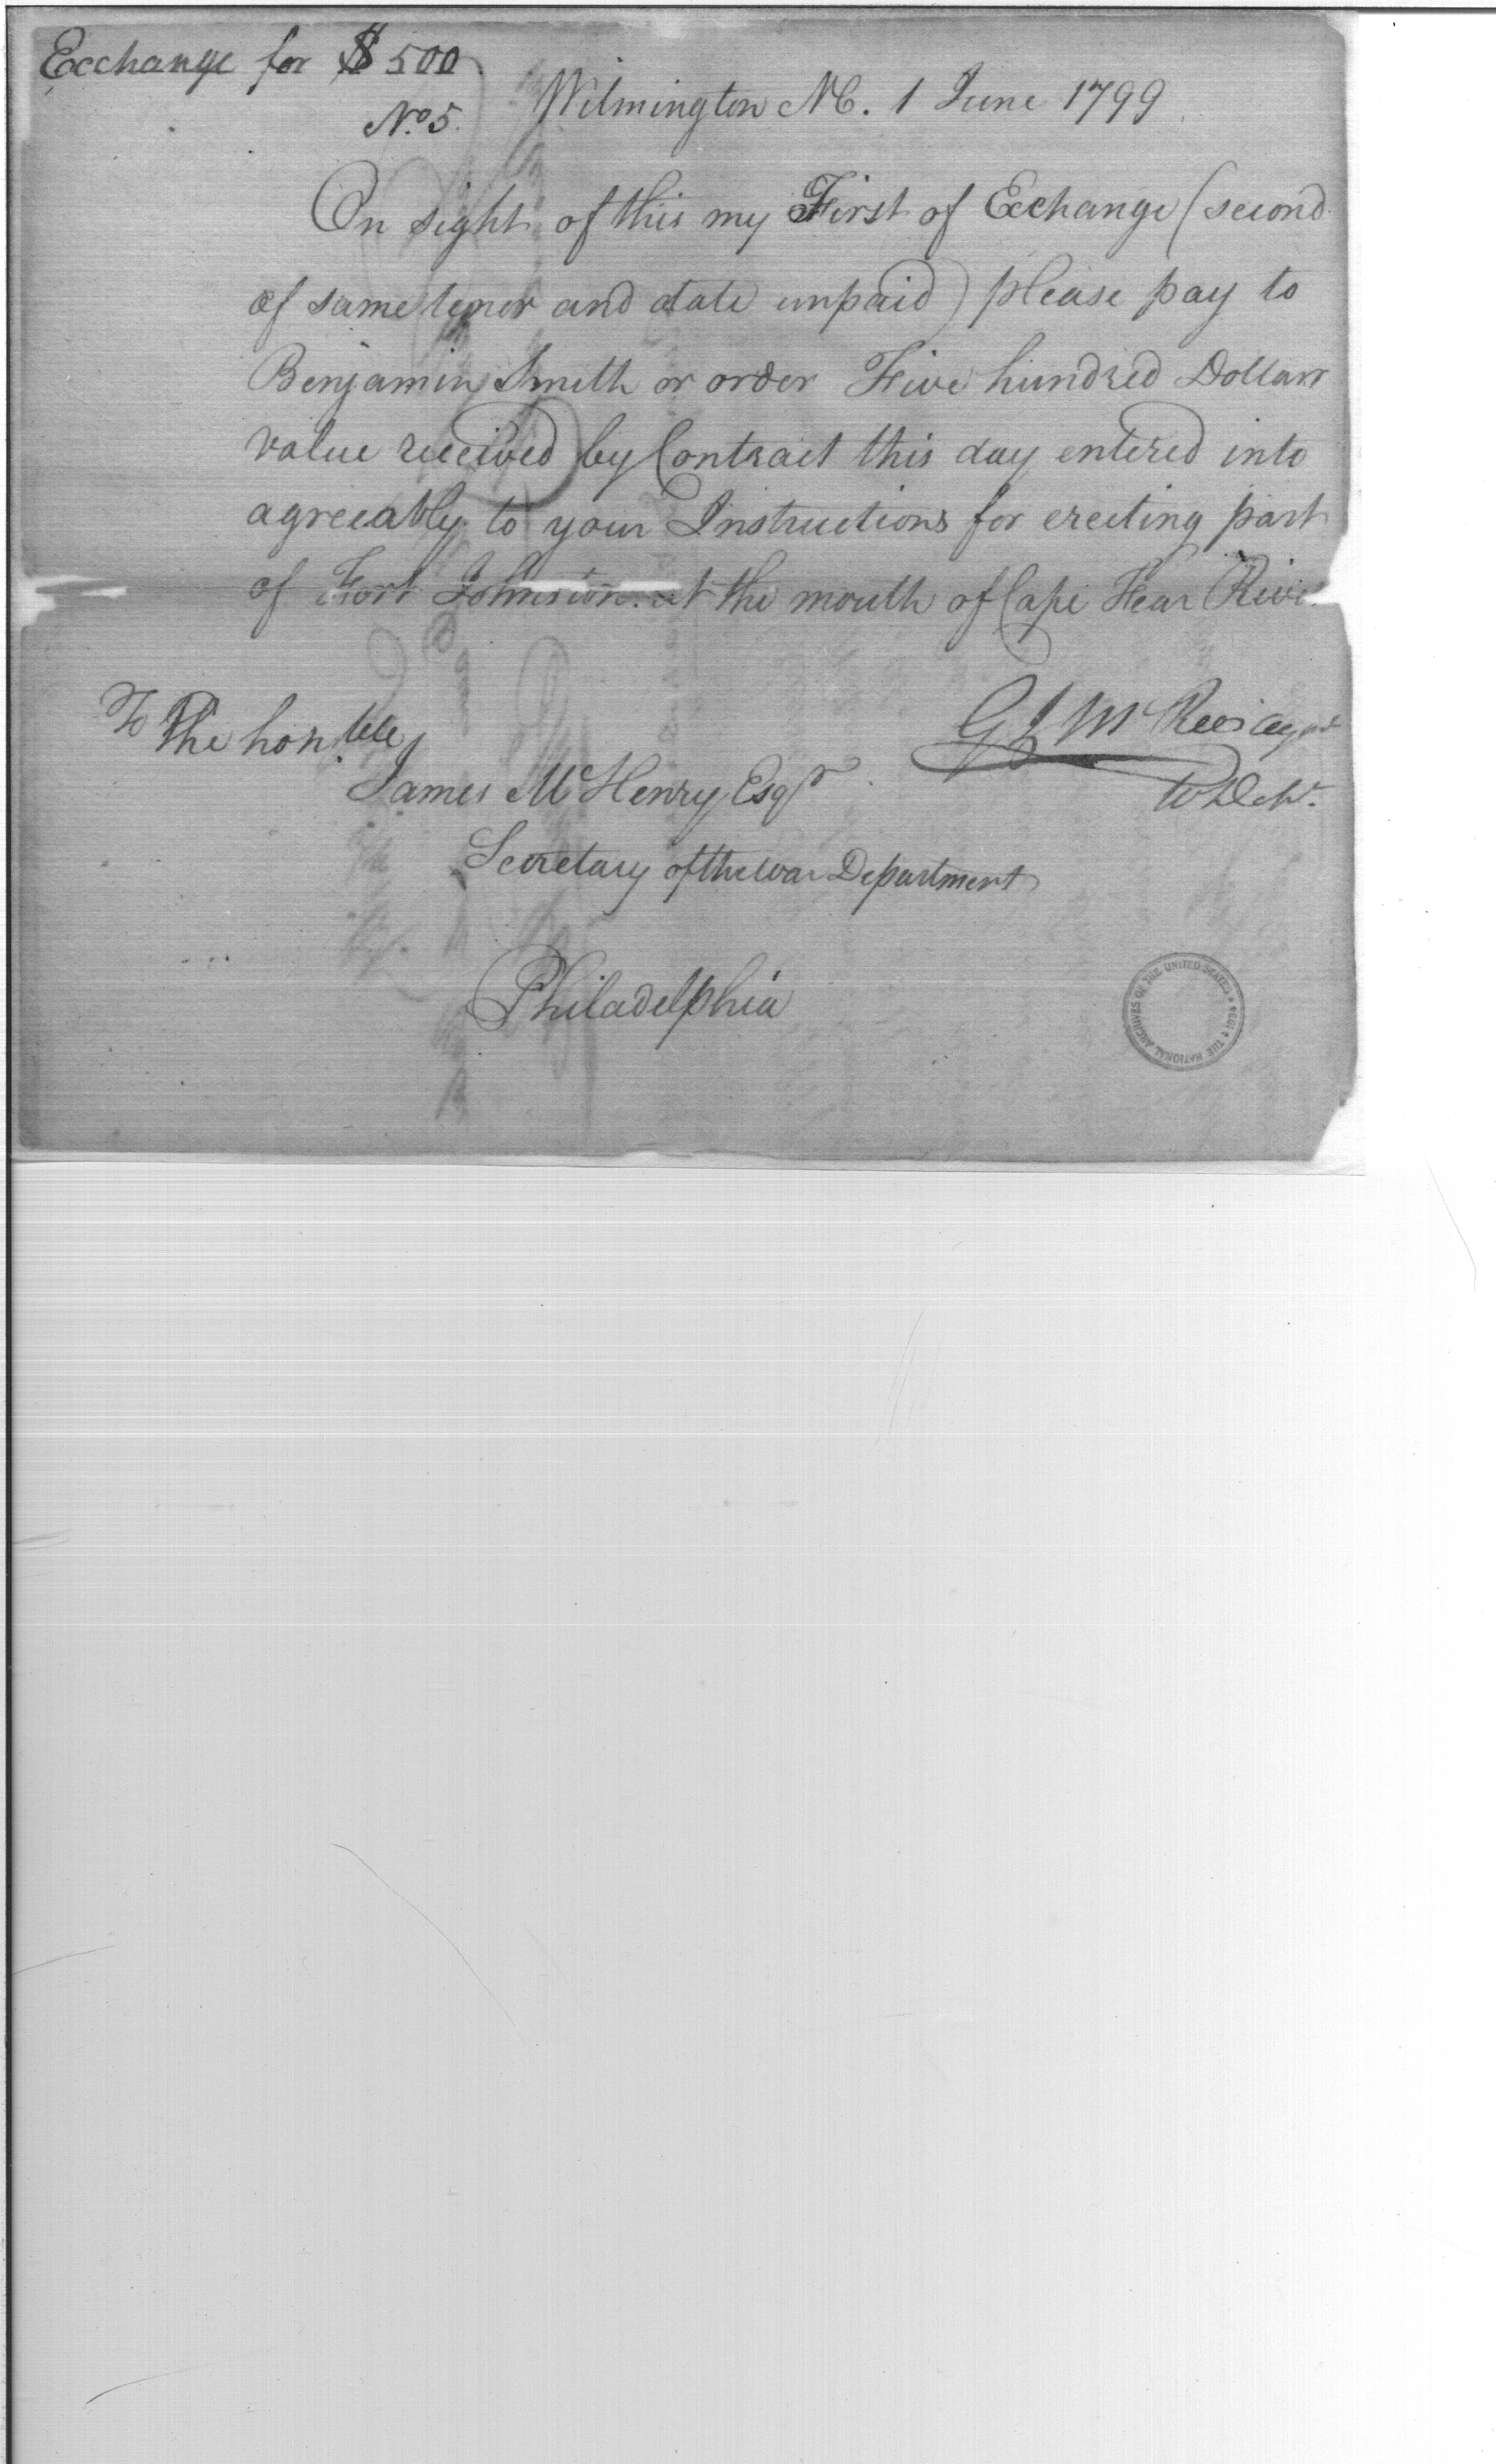 Exchange for $500
No. 5. Wilmington NC. 1 June 1799
On sight of this my First of Exchange (second
of same tenor and date unpaid) please pay to
Benjamin Smith or order Five hundred Dollars
value received by Contract this day entered into
agreeably to your Instructions for erecting part
of Fort Johnston at the mouth of Cape Fear River
To The honble
James McHenry Esqr
Secretary of the War Department
Philadelphia
G J McRee agent
W Dept.
THE NATIONAL ARCHIVES OF THE UNITED STATES